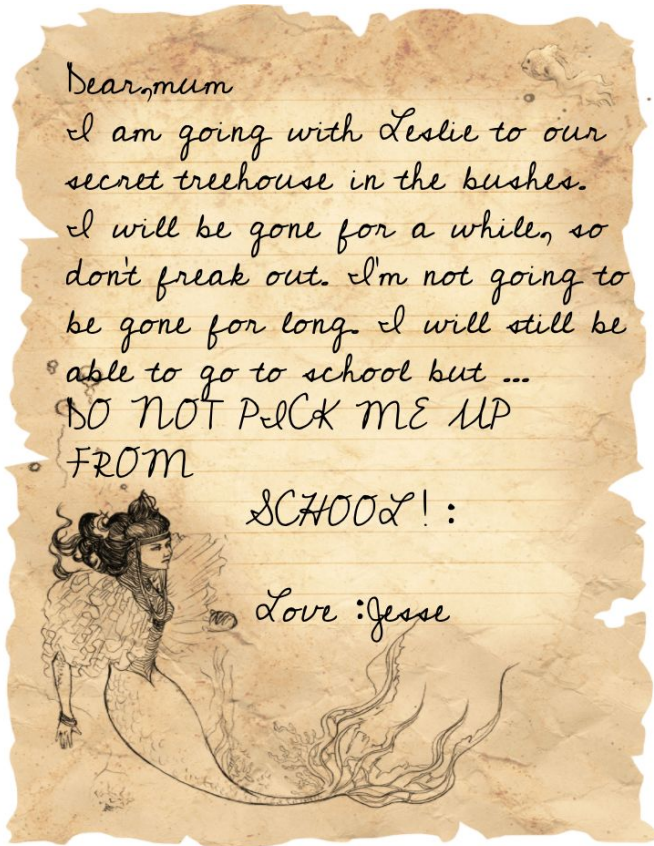 Dear,mum
I am going with Leslie to our
secret treehouse in the bushes.
I will be gone for a while, so
don't freak out. I'm not going to
be gone for long. I will still be
able to go to school but ...
DO NOT PICK ME UP
FROM
SCHOOL! :
Love :Jesse